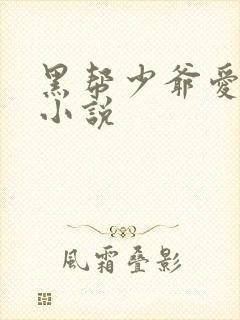 黑帮少爷愛
小説
風霜叠影